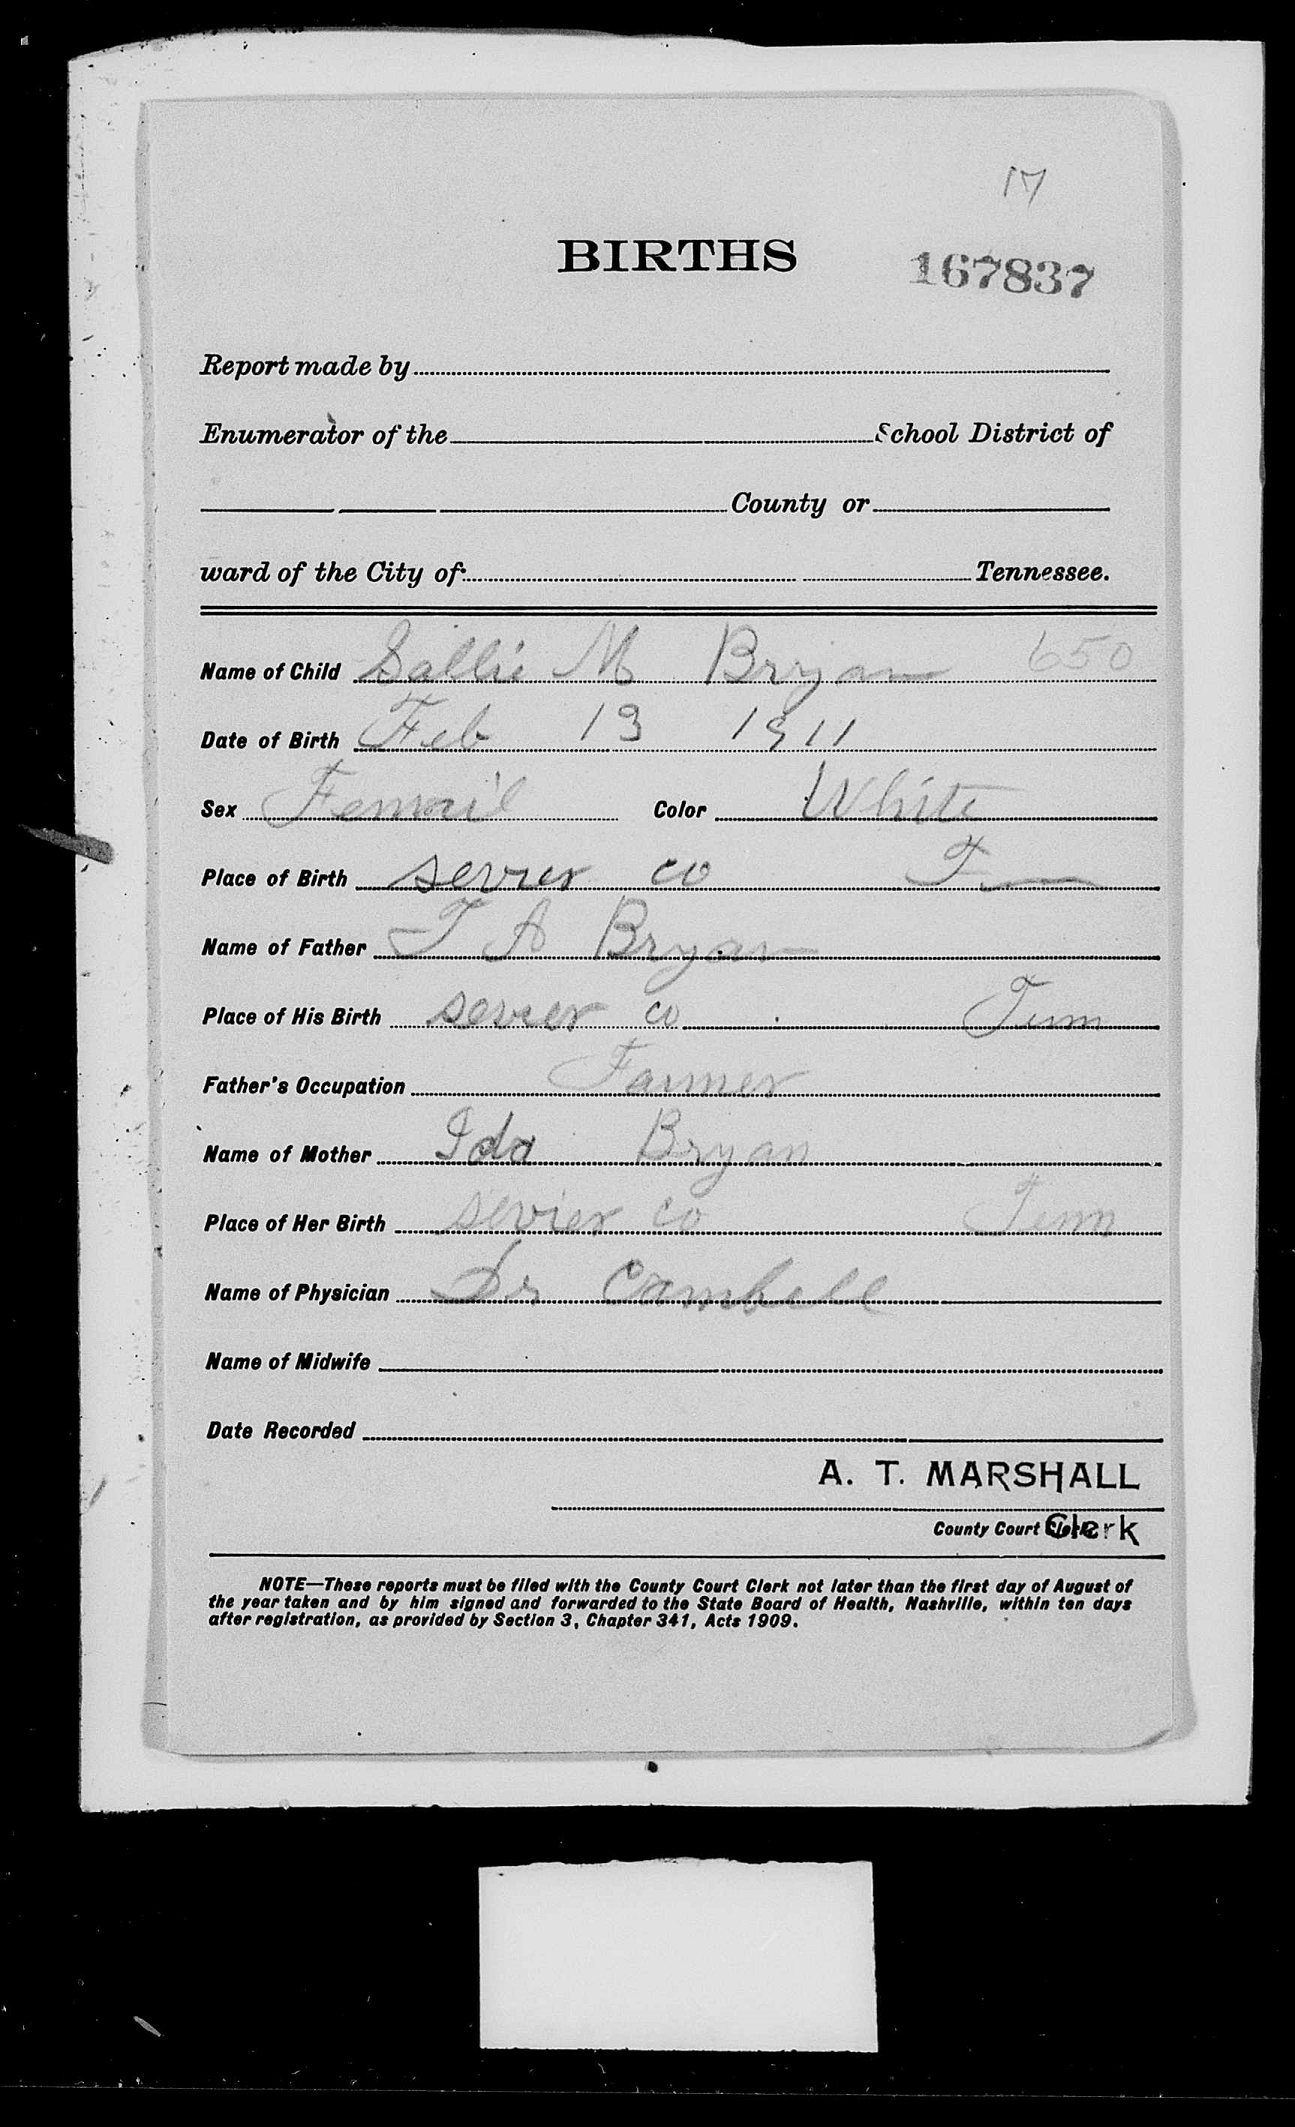 17
BIRTHS 167837
Report made by
Enumerator of the School District of
County or
ward of the City of Tennessee.
Name of Child Sallie M Bryan 650
Date of Birth Feb 13 1911
Sex Femail Color White
Place of Birth sevier co T
Name of Father T A Bryan
Place of His Birth sevier co Tenn
Father's Occupation Farmer
Name of Mother Ida Bryan
Place of Her Birth sevier co Tenn
Name of Physician Dr Cambell
Name of Midwife
Date Recorded
A. T. MARSHALL
County Court Clerk
NOTE—These reports must be filed with the County Court Clerk not later than the first day of August of
the year taken and by him signed and forwarded to the State Board of Health, Nashville, within ten days
after registration, as provided by Section 3, Chapter 341, Acts 1909.